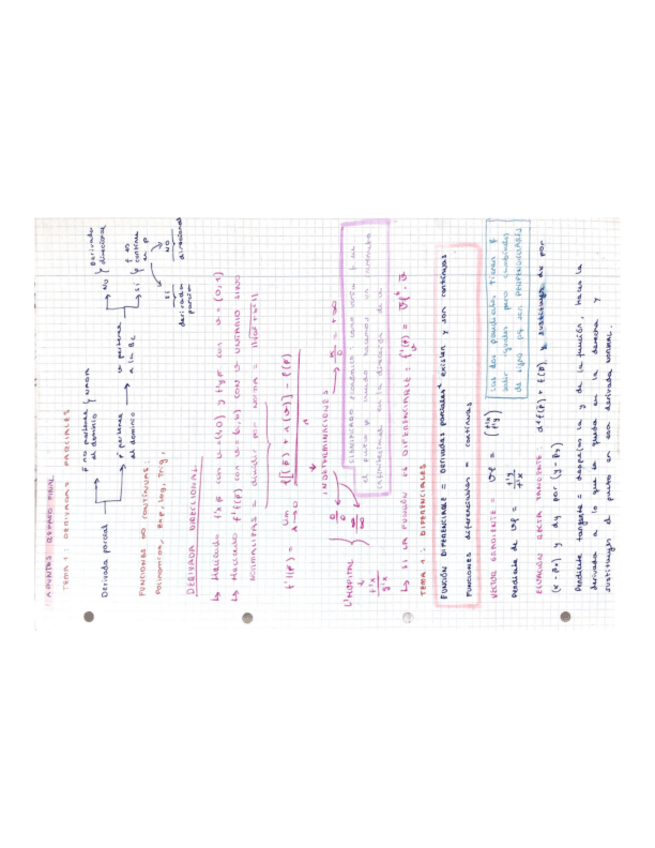 APUNTES REPASO FINAL
TEMA 1: DERIVADAS PARCIALES
Derivada parcial
p̄ no pertenece al dominio } nada
p̄ pertenece al dominio
v pertenece a la Bc
No } Derivada direccional
Sí } f es continua en p
Sí derivada parcial
NO direccional
FUNCIONES CONTINUAS:
Polinomios, Exp, log, Trig,
DERIVADA DIRECCIONAL
↳ Haciendo f'x p con v = (1,0) y f'y p con v = (0,1)
↳ Haciendo f'v(p) con v = (a,b) con v unitario sino
NORMALIZAS = dividir por norma =
f'v(p̄) = lim λ→0 f[(p̄) + λ(v)] - f(p̄)
INDETERMINACIONES
0/0 ∞/∞
L'HOPITAL
f'x
g'x
SIGNIFICADO
el punto p cuando hacemos un incremento
infinitesimal en la dirección de v
↳ SI LA FUNCIÓN ES DIFERENCIABLE: f'v(p̄) = ∇f · v̄
TEMA 2: DIFERENCIALES
FUNCIÓN DIFERENCIABLE = Derivadas parciales existen y son continuas
FUNCIONES diferenciables = continuas
VECTOR GRADIENTE = ∇f = (f'x f'y)
Pendiente de ∇f = f'y / f'x
Las dos pendientes tienen
valor iguales pero cambiadas
de signo pq son PERPENDICULARES
ECUACIÓN RECTA TANGENTE: df(p̄) + f(p̄) y sustituyes dx por
(x - px) y dy por (y - py)
Pendiente tangente = despejas la y de la función, haces la
derivada a lo que te queda en la derecha y
sustituyes el punto en esa derivada normal.